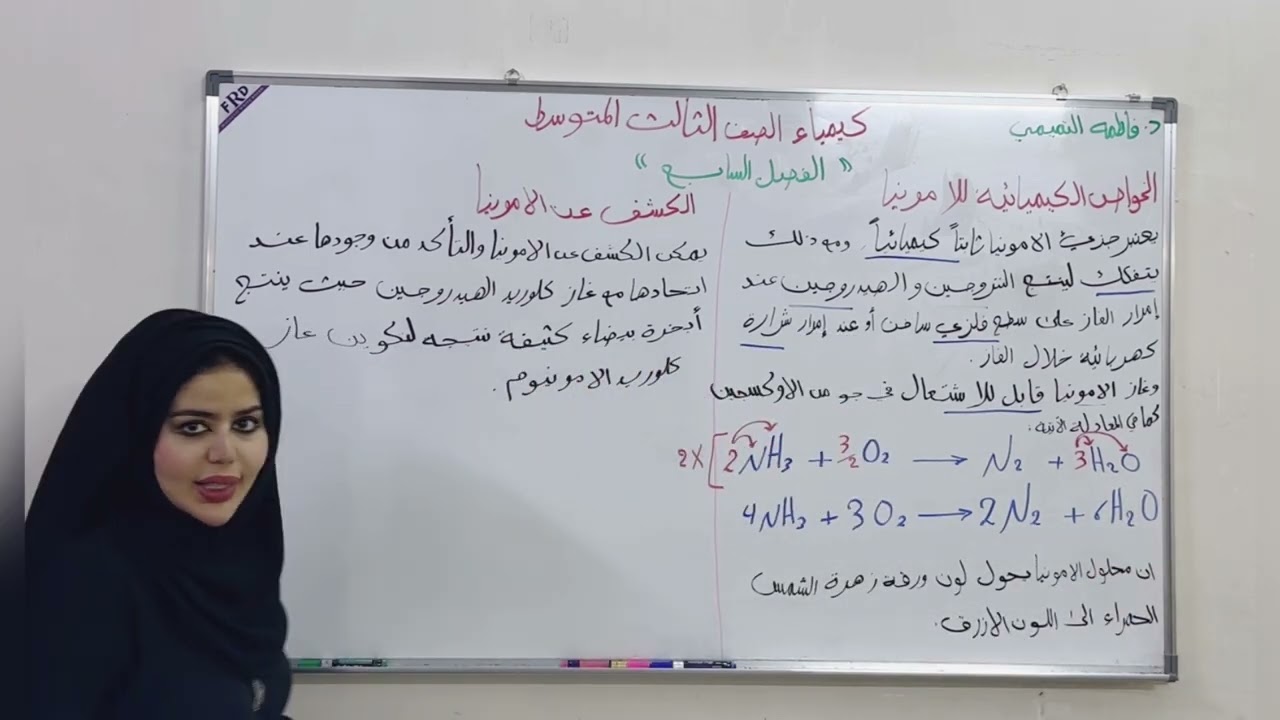 د. فاطمه التميمي
كيمياء الصف الثالث المتوسط
" الفصل السابع "
الخواص الكيميائية للامونيا
يعتبر جزيء الامونيا ثابتاً كيميائياً، ومع ذلك
يتفكك لينتج النتروجين والهيدروجين عند
إمرار الغاز على سطح فلزي ساخن أو عند إمرار شرارة
كهربائية خلال الغاز.
وغاز الامونيا قابل للاشتعال في جو من الاوكسجين
كما في المعادلة الآتية:
2× [2NH₃ + 3/2 O₂ → N₂ + 3H₂O
4NH₃ + 3O₂ → 2N₂ + 6H₂O
ان محلول الامونيا يحول لون ورقة زهرة الشمس
الحمراء الى اللون الازرق.
الكشف عن الامونيا
يمكن الكشف عن الامونيا والتأكد من وجودها عند
اتحادها مع غاز كلوريد الهيدروجين حيث ينتج
أبخرة بيضاء كثيفة نتيجه لتكوين غاز
كلوريد الامونيوم.
FRD